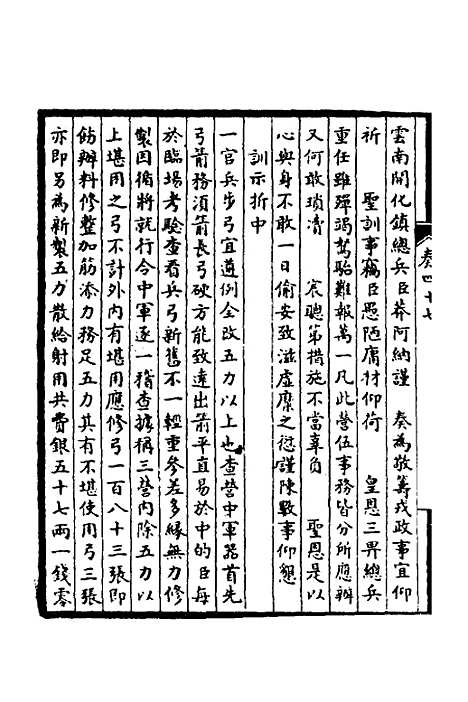 奏四十七
雲南開化鎮總兵臣莽阿納謹　奏為敬籌戎政事宜仰
祈　聖訓事竊臣愚陋庸材仰荷　皇恩三畀總兵
重任雖殫竭駑駘難報萬一凡此營伍事務皆分所應辦
又何敢瑣瀆　宸聰第措施不當辜負　聖恩是以
心與身不敢一日偷安致滋虛糜之愆謹陳數事仰懇
訓示折中
一官兵步弓宜遵例全改五力以上也查營中軍器首先
弓箭務須箭長弓硬方能致遠出箭平直易於中的臣每
於臨場考驗查看兵弓新舊不一輕重參差多緣無力修
製因循將就行令中軍逐一稽查據稱三營內除五力以
上堪用之弓不計外內有堪用應修弓一百八十三張即
飭辦料修整加筋添力務足五力其有不堪使用弓三張
亦即另為新製五力散給射用共費銀五十七兩一錢零